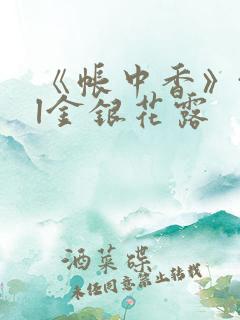 《帐中香》
金银花露
酒菜碟
未经同意禁止转载